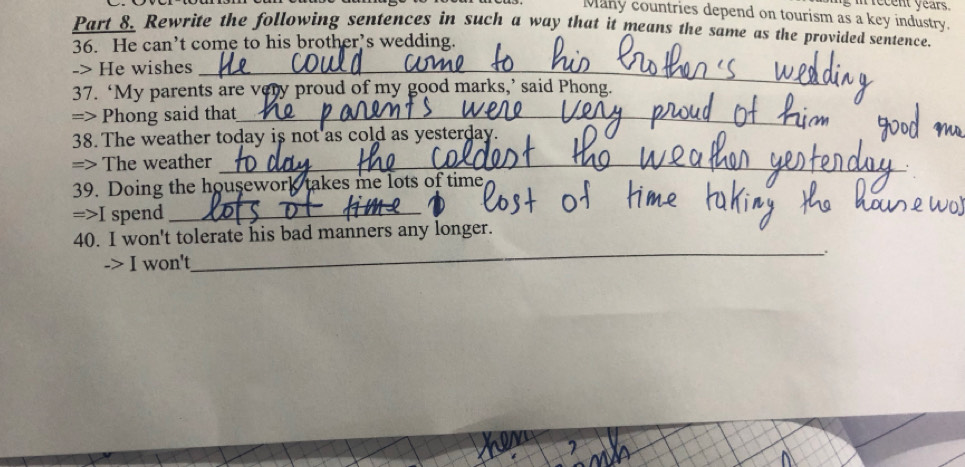 Many countries depend on tourism as a key industry.
Part 8. Rewrite the following sentences in such a way that it means the same as the provided sentence.
36. He can't come to his brother's wedding.
-> He wishes He could come to his brother's wedding
37. 'My parents are very proud of my good marks,' said Phong.
=> Phong said that he parents were very proud of him good ma
38. The weather today is not as cold as yesterday.
=> The weather today the coldest the weather yesterday.
39. Doing the housework takes me lots of time
=>I spend lots of time lost of time taking the housewor
40. I won't tolerate his bad manners any longer.
-> I won't .
then